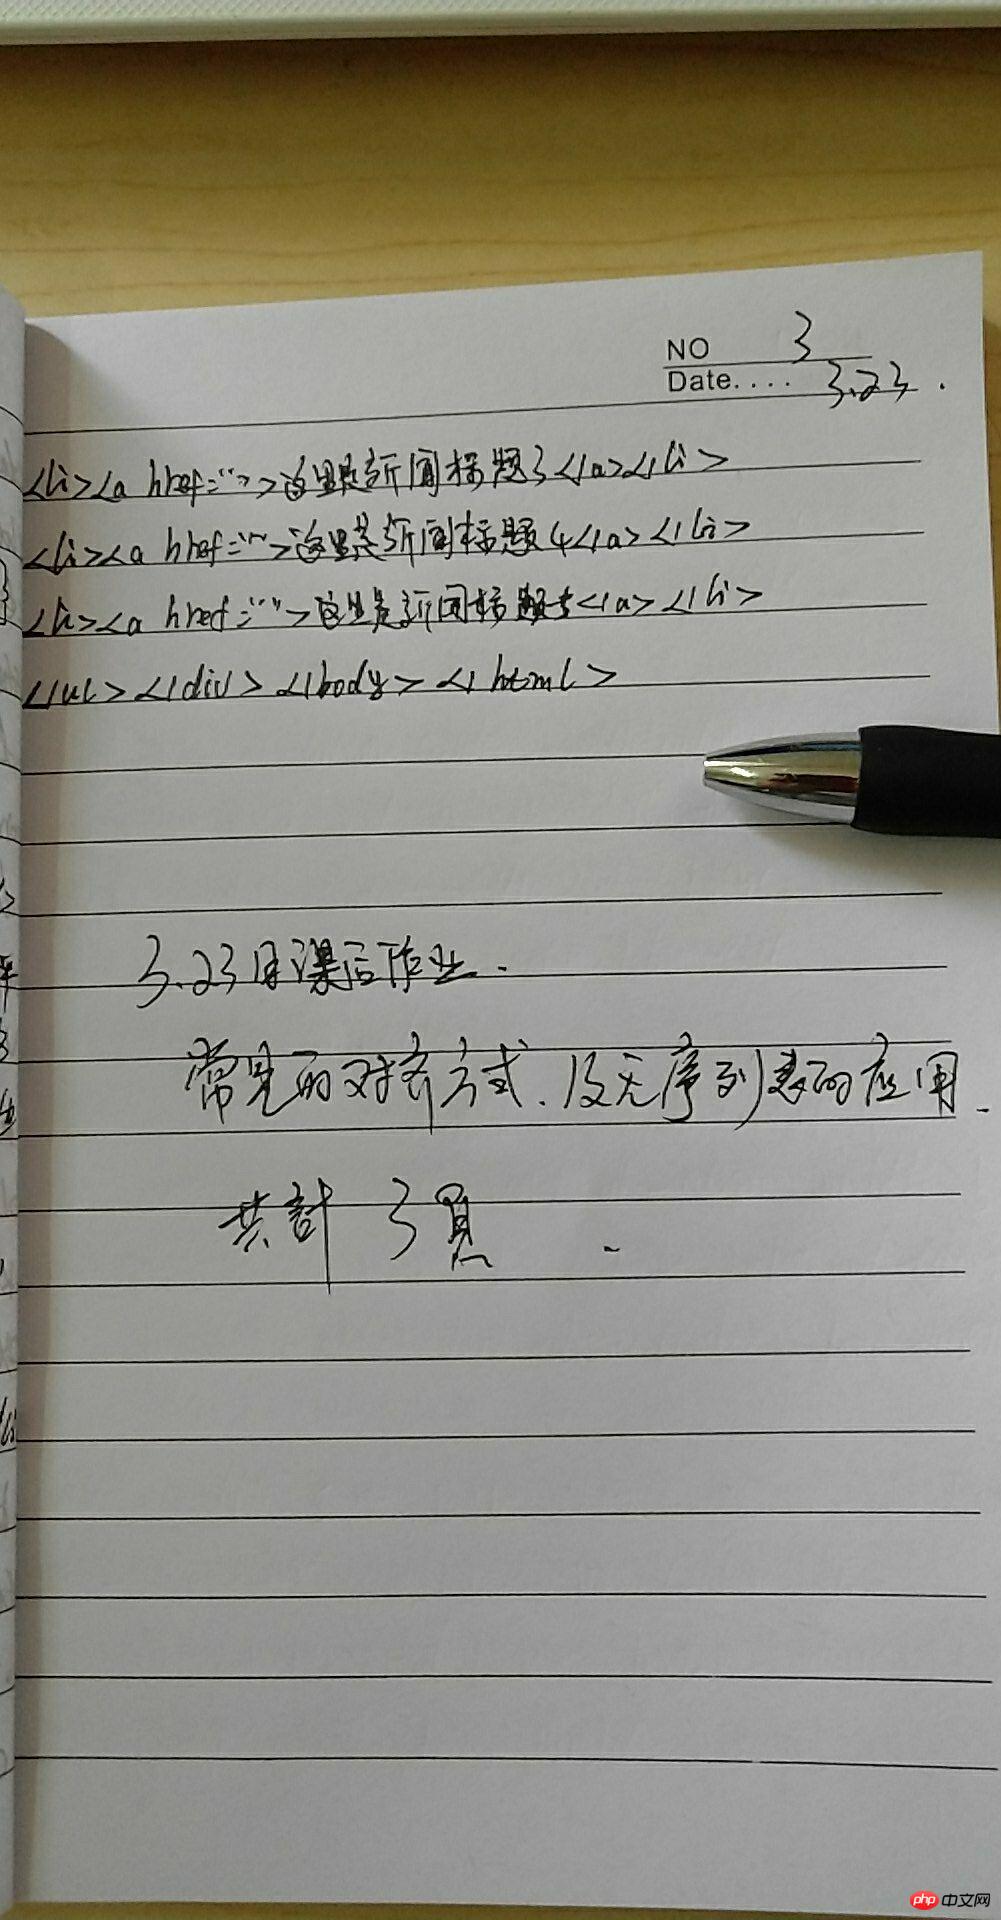 NO 3
Date.... 3.23.
<li><a href="">这里是新闻标题3</a></li>
<li><a href="">这里是新闻标题4</a></li>
<li><a href="">这里是新闻标题5</a></li>
</ul></div></body></html>
3.23日课后作业.
常见的对齐方式.及无序列表的应用.
共計 3頁.
php中文网